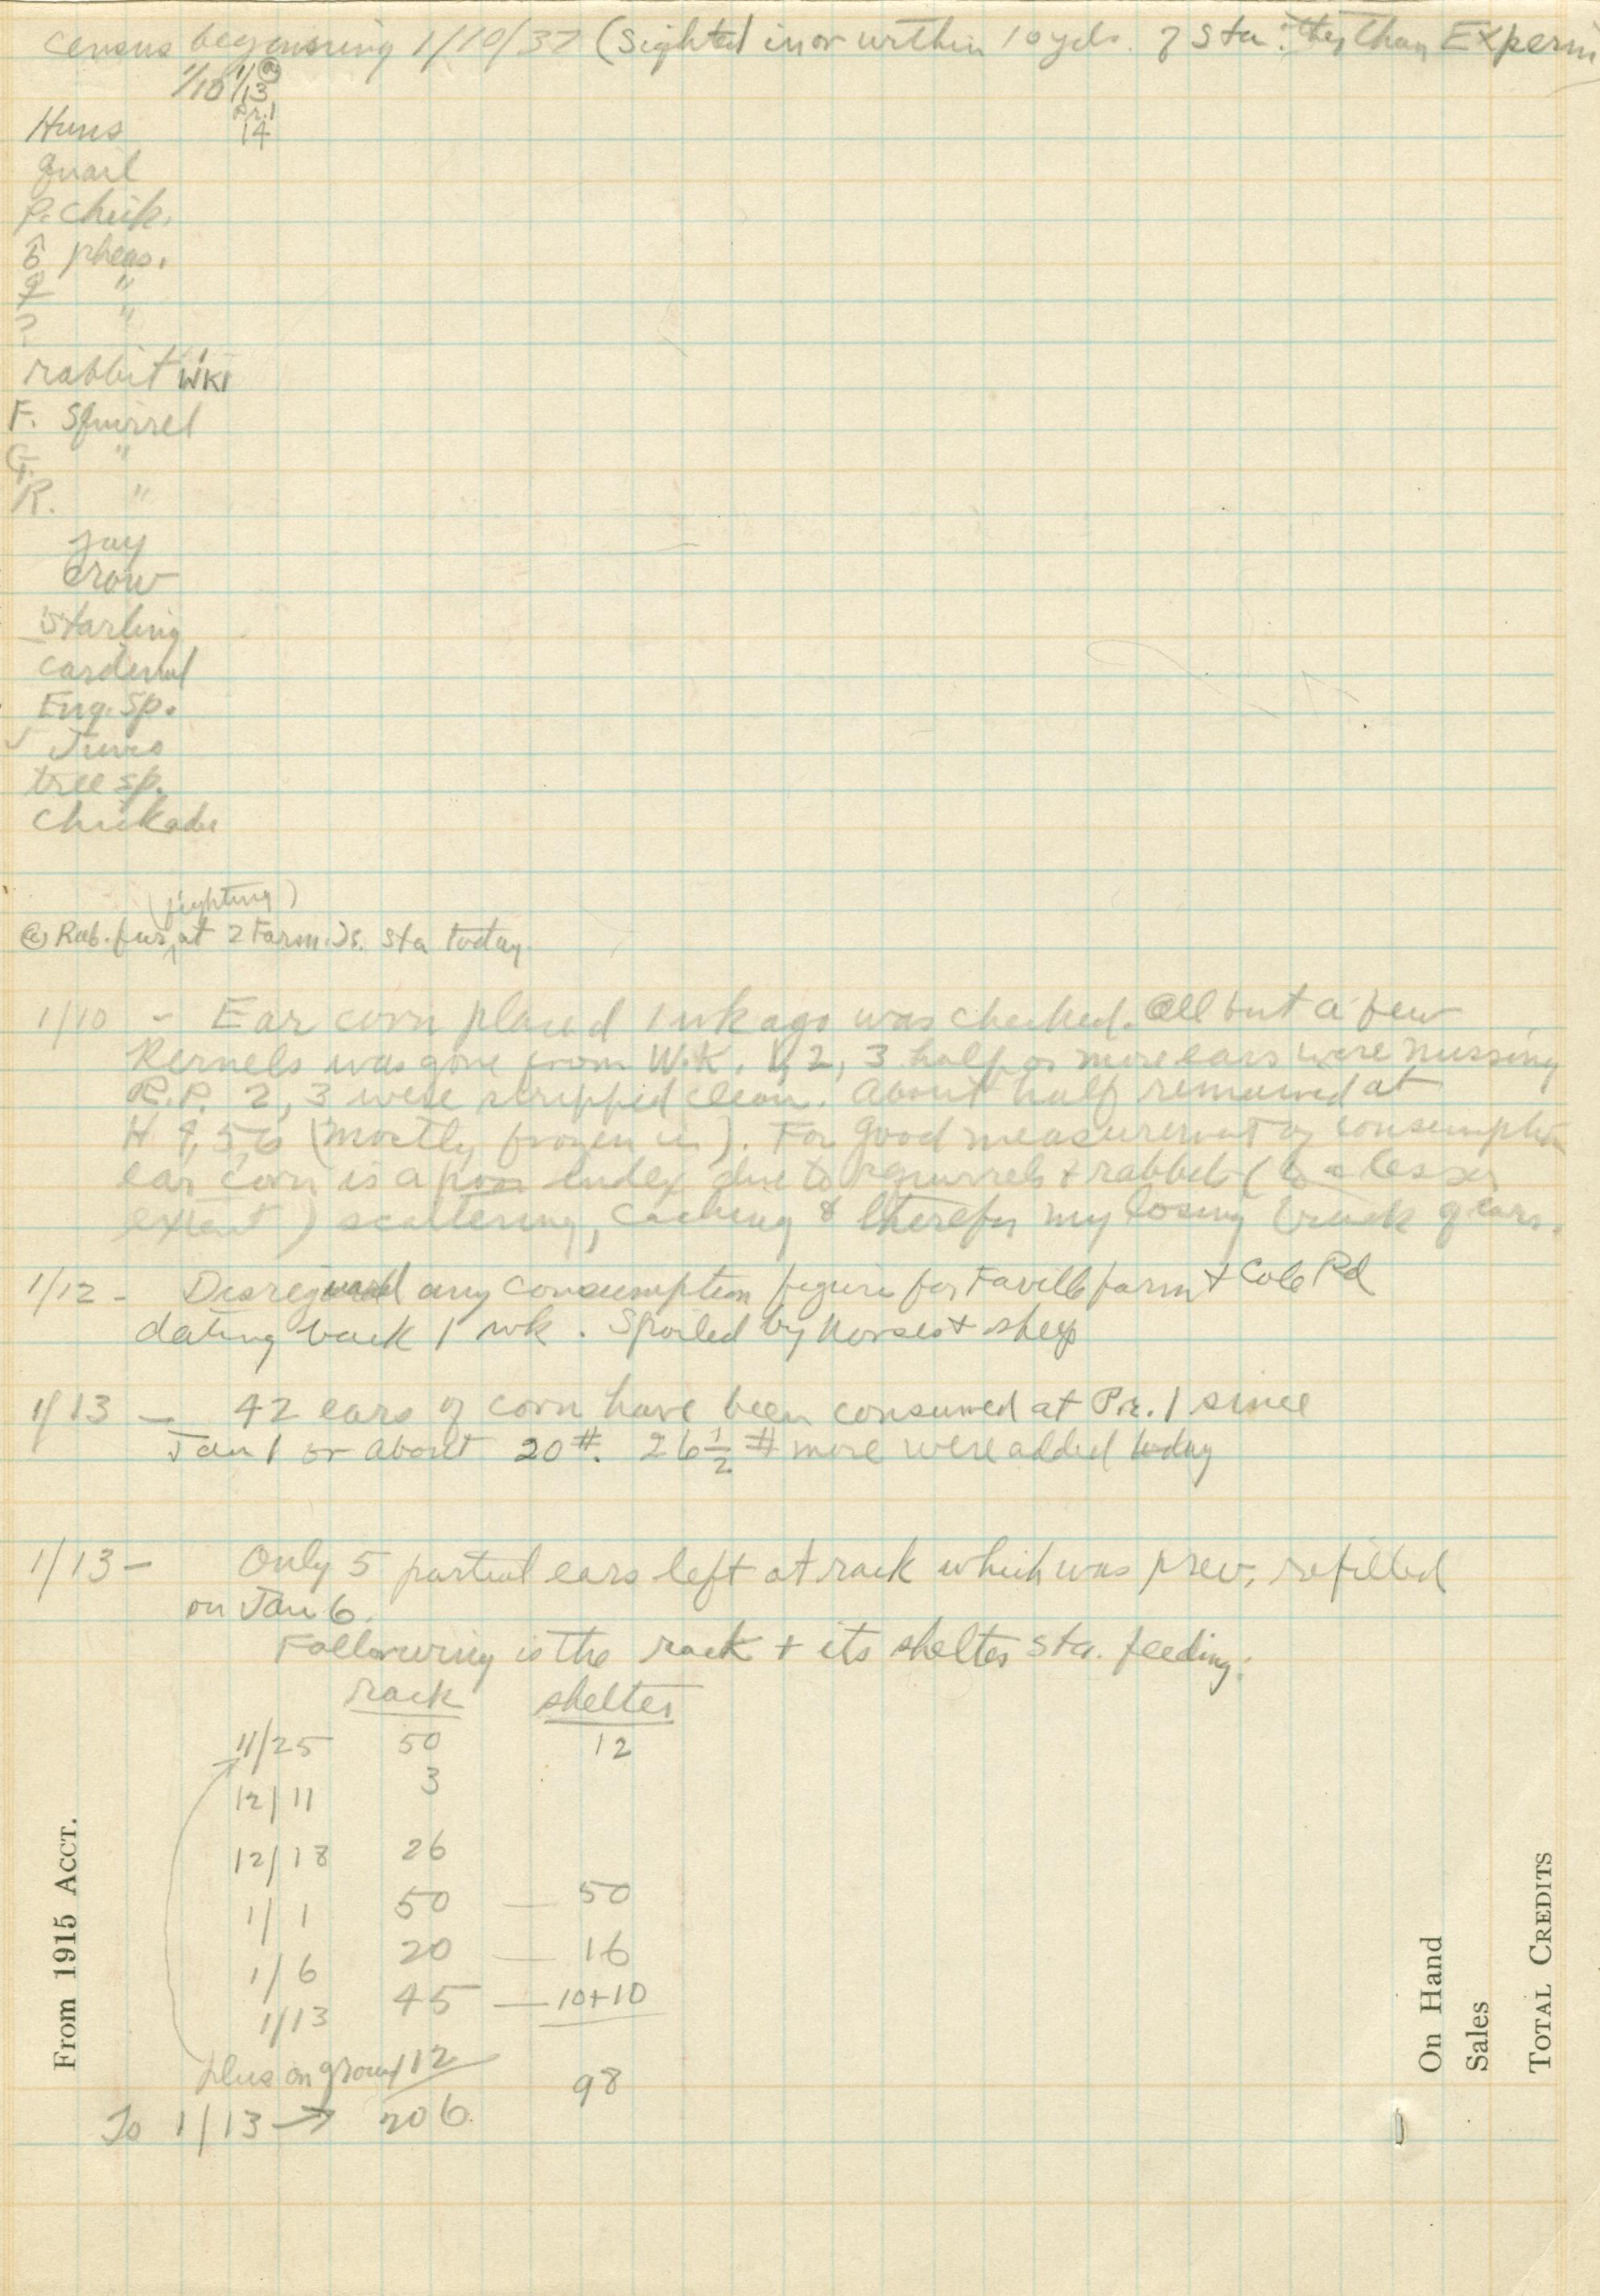 Census beginning 1/10/37 (Sighted in or within 10 yds. of Sta. other than Experim
1/10 1/13 (a)
Pr. 1
Huns 14
Quail
P. chick.
♂ pheas.
♀ "
? "
rabbit WK1
F. Squirrel
G. "
R. "
jay
crow
Starling
cardinal
Eng. Sp.
Junco
tree sp.
Chickadee
(fighting)
(a) Rab. fur ^ at 2 Farm. Is. Sta today.
1/10 - Ear corn placed 1 wk ago was checked. All but a few
Kernels was gone from W.K. 1, 2, 3 half or more ears were missing
R.P. 2, 3 were stripped clean. About half remained at
H 4, 5, 6 (mostly frozen in). For good measurement of consumption
ear corn is a poor index due to squirrels & rabbits (to a lesser
extent) scattering, caching & therefor my losing track of ears.
1/12 - Disreguard any consumption figure for Faville farm + Cole Pd
dating back 1 wk. Spoiled by horses + sheep
1/13 - 42 ears of corn have been consumed at Pr. 1 since
Jan 1 or about 20 #. 26 1/2 # more were added today
1/13 - Only 5 partial ears left at rack which was prev. refilled
on Jan 6.
Following is the rack + its shelter sta. feeding:
rack shelter
11/25 50 12
12/11 3
12/18 26
1/1 50 — 50
1/6 20 — 16
1/13 45 — 10+10
plus on ground 12
98
To 1/13 → 206
From 1915 Acct.
On Hand
Sales
Total Credits